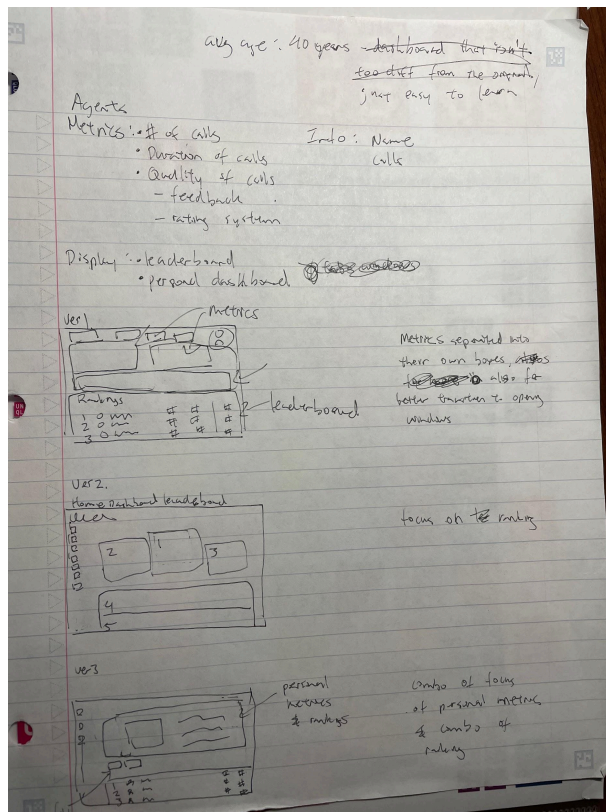 avg age : 40 years dashboard that isn't
too diff from the original,
just easy to learn
Agents
Metrics : • # of calls
Info : Name
calls
• Duration of calls
• Quality of calls
- feedback
- rating system
Display : • leaderboard
• personal dashboard
Ver 1
metrics
Rankings
1
# # #
2
# # #
3
# # #
leaderboard
Metrics separated into
their own boxes,
also for
better transition to opening
windows
Ver 2.
Home Dashboard leaderboard
2 1 3
4
5
focus on ranking
ver 3
personal
metrics
& rankings
combo of focus
of personal metrics
& combo of
ranking